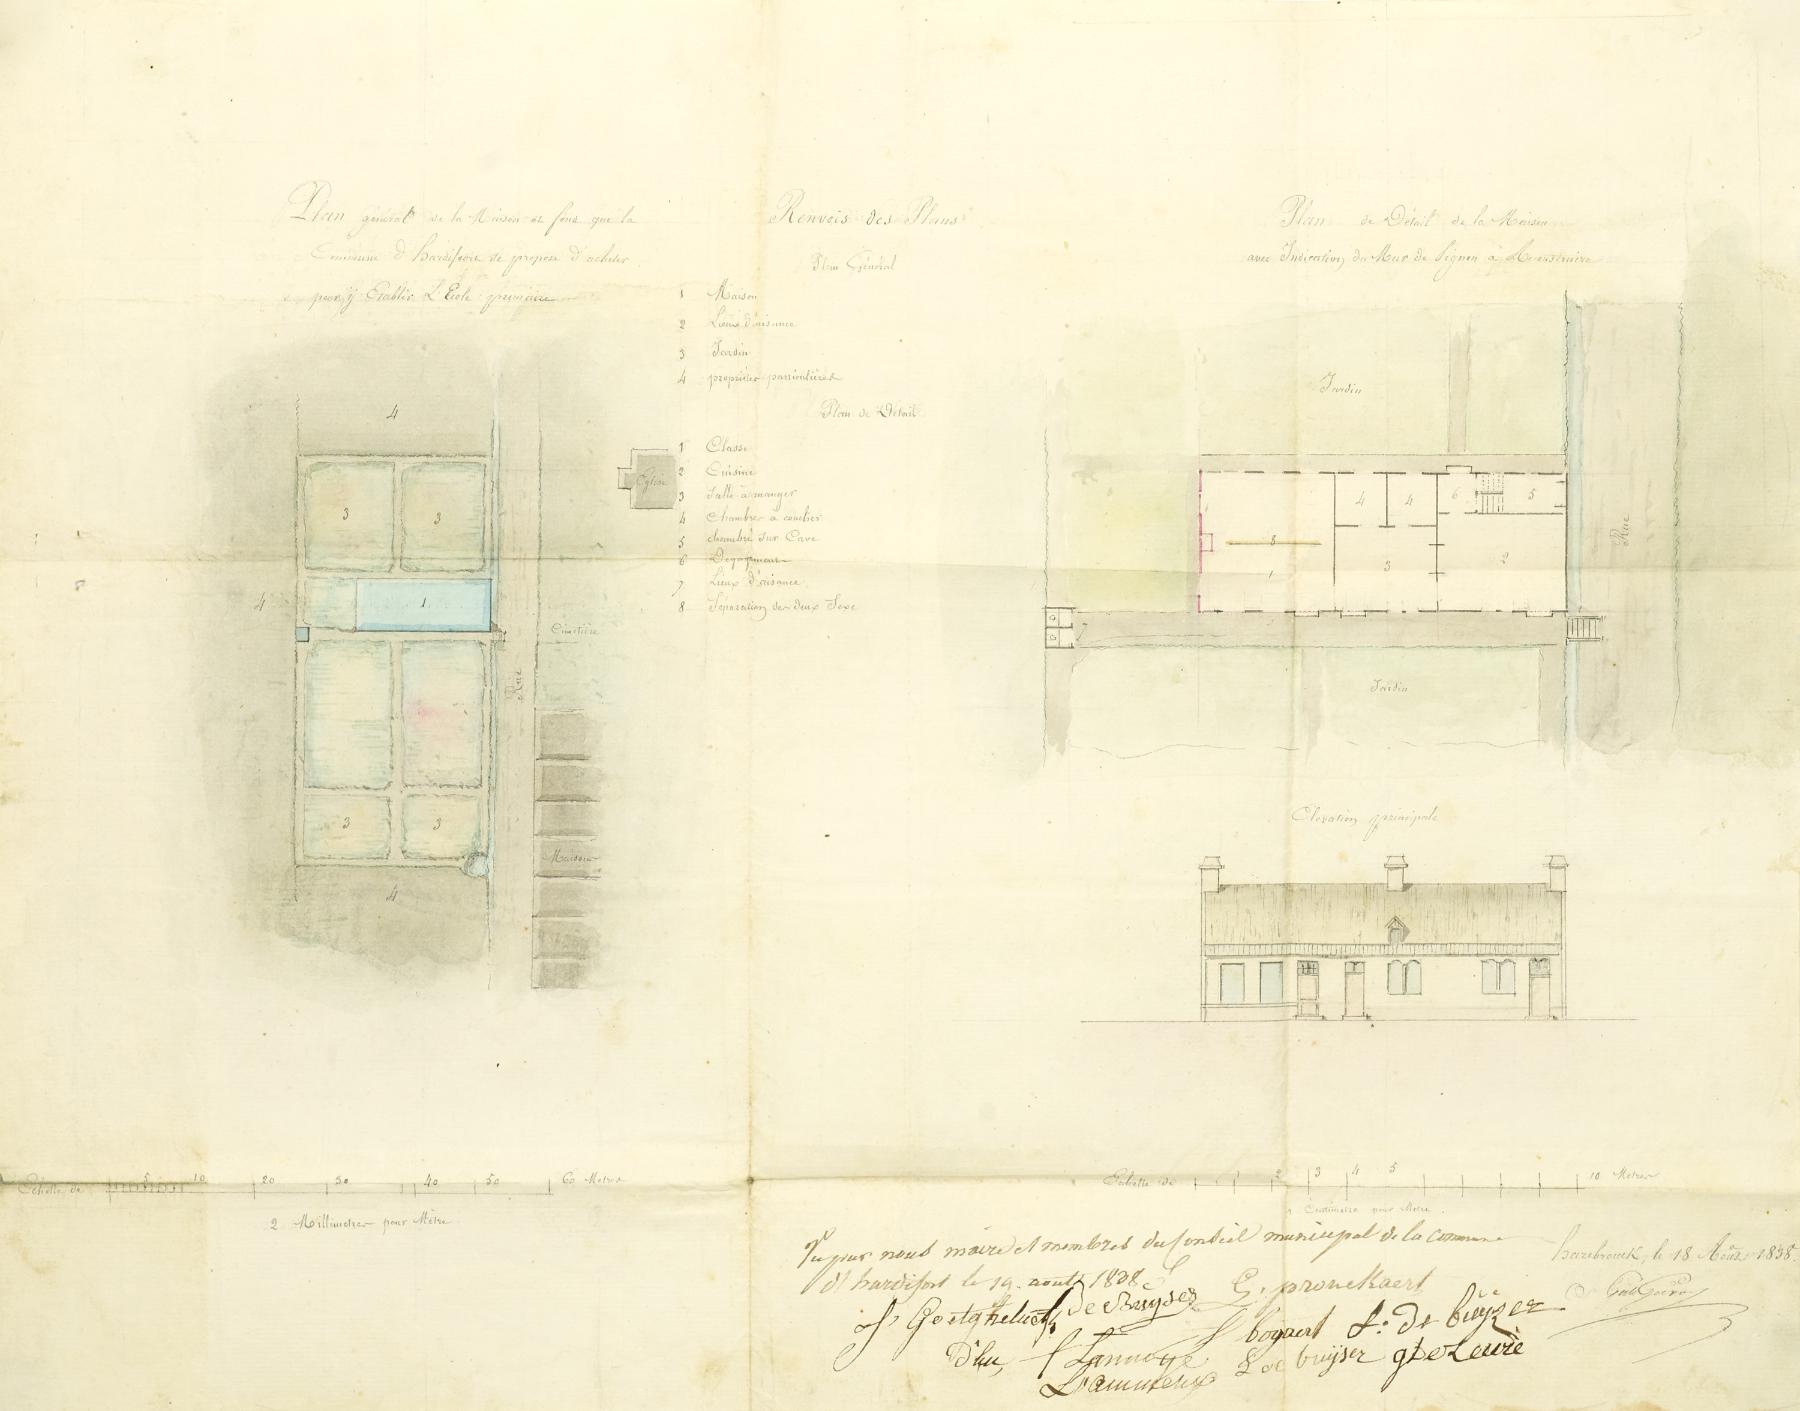 Plan général de la Maison et fond que la
Commune d'hardifort se propose d'acheter
pour y Etablir L'Ecole primaire
4
3 3
4
1
Eglise
Cimetière
Rue
Maisons
3 3
4
Echelle de 5 10 20 30 40 50 60 Metres
2 Millimetres pour Mètre
Renvois des Plans
Plan Général
1 Maison
2 Lieux d'aisance
3 Jardin
4 propriétés particulières
Plan de Détail
1 Classe
2 Cuisine
3 Salle à manger
4 Chambres à coucher
5 chambre sur Cave
6 Degagement
7 Lieux d'aisance
8 Séparation des deux Sexe
Plan de Détail de la Maison
avec Indication du Mur de Pignon à Reconstruire
Jardin
4 4 6 5
8
1 3 2
Rue
7
Jardin
Elevation principale
Echelle de 1 2 3 4 5 10 Metres
1 Centimetre pour Metre
Vu par nous maire et membres du Conseil municipal de la commune
d'hardifort le 19 août 1838
hazebrouck, le 18 Août 1838.
De Buyser
bogaert De buyzer
Lannoye De buyser